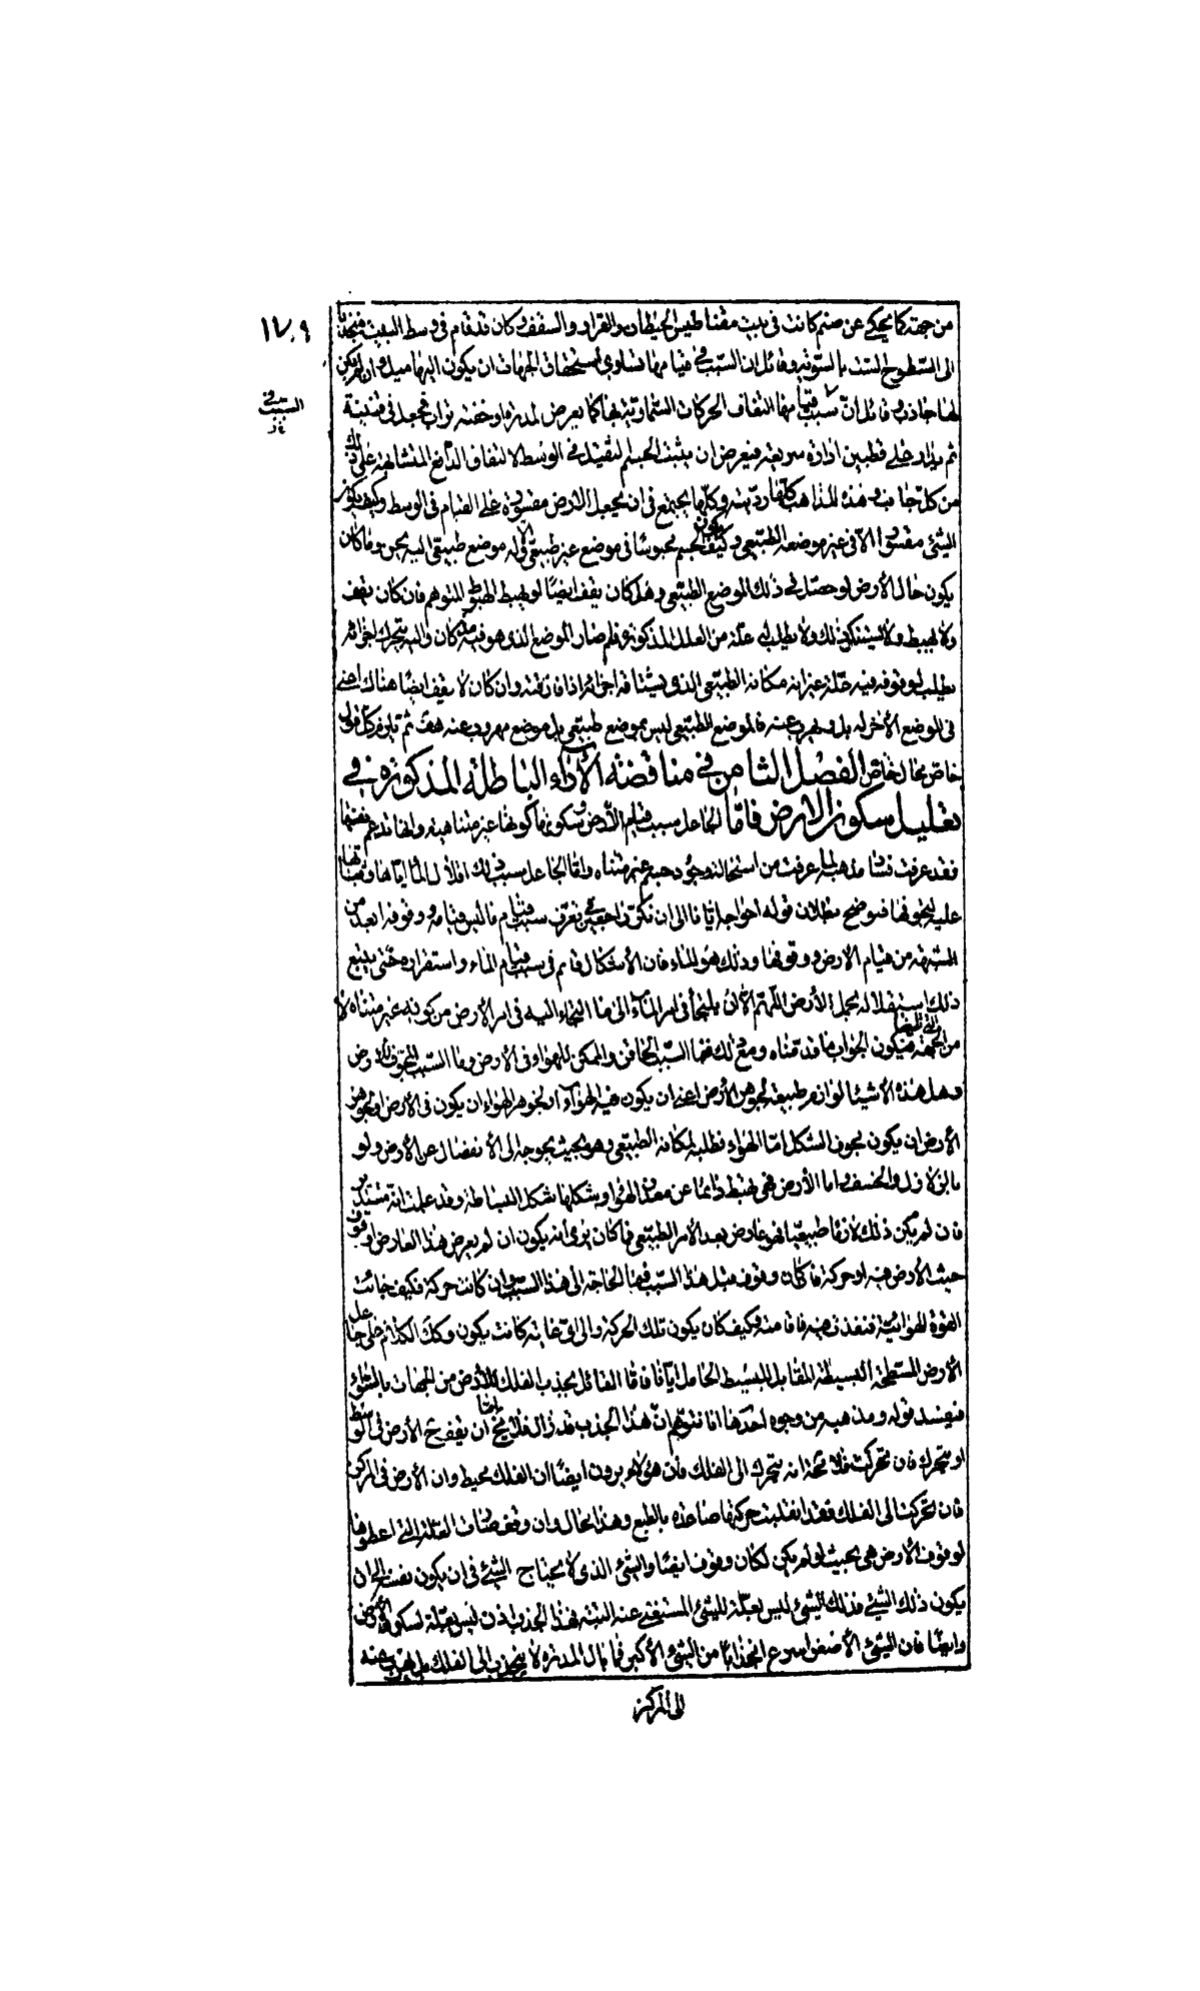 ١٧٠٩
السبب فى
خ ل
من جهته كما يحكى عن صنم كانت فى بيت مقناطيسى الحيطان والقرار والسقف وكان قد قام فى وسط البيت منجذبا
الى السطوح الست بالسوية وقائل ان السبب فى قيامها تساوى استحقاق الجهات ان يكون اليها ميل وان لم يكن
لها جاذب وقائل ان سبب قيامها التفاف الحركات السماوية بها كما يعرض لمدرة او حفنة تراب تجعل فى قنينة
ثم يدار على قطبين ادارة سريعة فيعرض ان يثبت الجسم الثقيل فى الوسط لالتفاف الدافع المتشابهة على ذلك
من كل جانب وهذه المذاهب كلها ردية وكلها يجتمع فى ان يجعل الارض مقسورة على القيام فى الوسط وكيف يكون
الشئ مقسورا الا فى غير موضعه الطبيعى وكيف يكون الجسم محبوسا فى موضع غير طبيعى الا وله موضع طبيعى اليه يحن وما كان
يكون حال الأرض لو حصل فى ذلك الموضع الطبيعى وهل كان يقف ايضا او يهبط الهبوط المتوهم فان كان يقف
ولا يهبط ولا يستنكر ذلك ولا يطلب له علة من العلل المذكورة فلم صار الموضع الذى هو فيه كان واليه يتحرك اجزائه
يطلب لوقوفه فيه علة غير انه مكانه الطبيعى الذى يشتاقه اجزائه اذا فارقته وان كان لا يقف ايضا هناك اعنى
فى الموضع الأخر له بل ويهرب عنه فالموضع الطبيعى ليس بموضع طبيعى بل موضع مهروب عنه هف ثم تلزم كل قول
خاص محال خاص الفصل الثامن فى مناقضة الآراء الباطلة المذكورة فى
تعليل سكون الارض فاما الجاعل سبب قيام الأرض وسكونها كونها غير متناهية وانها تدعم نفسها
فقد عرفت فساد مذهبه لما عرفت من استحالة وجود جسم غير متناه واما الجاعل سبب ذلك اقلال الماء اياها وثباتها
عليه لتجوفها فيوضح بطلان قوله احواجه ايانا الى ان نكون راجعين فى تعرف سبب قيام ما ليس قيامه ووقوفه ابعد من
الشبهة من قيام الارض ووقوفها وذلك هو الماء فان الأشكال قائم فى سبب قيام الماء واستقراره حتى يتبع
ذلك استقلاله بحمل الأرض اللهم الا ان يلتجأ فى امر الماء الى ما التجاء اليه فى امر الأرض من كونه غير متناه
من الجهة التى تليها فيكون الجواب ما قدمناه ومع ذلك فما السبب الحاقن والممكن للهواء فى الأرض وما السبب المجوف للأرض
وهل هذه الأشياء لوازم طبيعة لجوهر الأرض اعنى ان يكون فيه الهواء او لجوهر الهواء ان يكون فى الأرض او لجوهر
الأرض ان يكون بجوف الشكل اما الهواء فطلبه لمكانه الطبيعى وهو بحيث يحوجه الى الأنفصال عن الأرض ولو
بالزلازل والخسف واما الأرض فهى تهبط دائما عن معدن الهواء وشكلها شكل البساطة وقد علمت انه مستدير
فان لم يكن ذلك لازما طبيعيا فهو عارض بعد الأمر الطبيعى فما كان يرى انه يكون ان لم يعرض هذا العارض اوقوف
حيث الأرض فيه او حركة فان كان وقوف مثل هذا السبب فما الحاجة الى هذا السبب وان كانت حركة فكيف جائت
القوة الهوائية فنفذت فيه فاقامته وكيف كان يكون تلك الحركة والى اى غاية كانت يكون وكذلك الكلام على جاعل
الأرض المسطحة البسيطة المقابل للبسيط الحامل اياها فاما القائل بجذب الفلك للأرض من الجهات بالسواء
فيفسد قوله ومذهبه من وجوه احدها انا نتوهم ان هذا الجذب قد زال فلا يخ اما ان يقف الأرض فى الوسط
او يتحرك فان تحركت فلا محة انه يتحرك الى الفلك فان هؤلاء يرون ايضا ان الفلك محيط وان الأرض فى المركز
فان تحركت الى الفلك فقد انقلبت حركتها صاعدة بالطبع وهذا محال وان وقف صارت العلة التى اعطوها
لوقوف الأرض هى بحيث لو لم يكن لكان وقوف ايضا والشئ الذى لا يحتاج الشئ فى ان يكون نفسه الى ان
يكون ذلك الشئ فذلك الشئ ليس بعلة للشئ المستغنى عنه البتة فهذا الجذب اذن ليس بعلة لسكون الأرض
وايضا فان الشئ الأصغر اسرع انجذابا من الشئ الأكبر فما بال المدرة لا ينجذب الى الفلك بل يهرب عنه
الى المركز